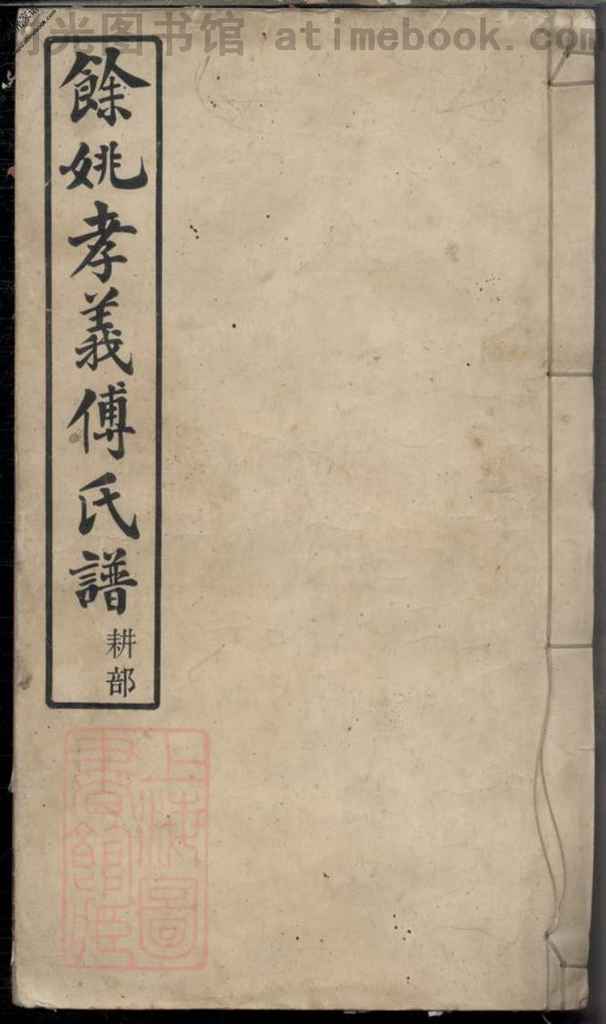 时光图书馆 atimebook.com
餘姚孝義傅氏譜
耕部
上海圖
書館藏